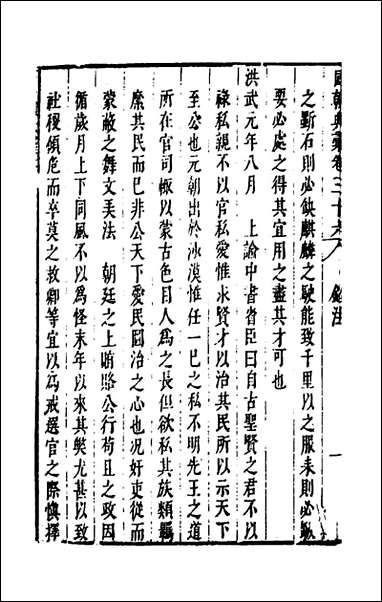 國朝典彙卷三十六 銓法 一
之斲石則必缺麒麟之駛能致千里以之服耒則必蹶
要必處之得其宜用之盡其才可也
洪武元年八月 上諭中書省臣曰自古聖賢之君不以
祿私親不以官私愛惟求賢才以治其民所以示天下
至公也元朝出於沙漠惟任一巳之私不明先王之道
所在官司輒以蒙古色目人爲之長但欲私其族類羈
縻其民而巳非公天下愛民圖治之心也况奸吏從而
蒙蔽之舞文弄法 朝廷之上賄賂公行苟且之政因
循歲月上下同風不以爲怪末年以來其獘尤甚以致
社稷傾危而卒莫之救卿等宜以爲戒選官之際慎擇